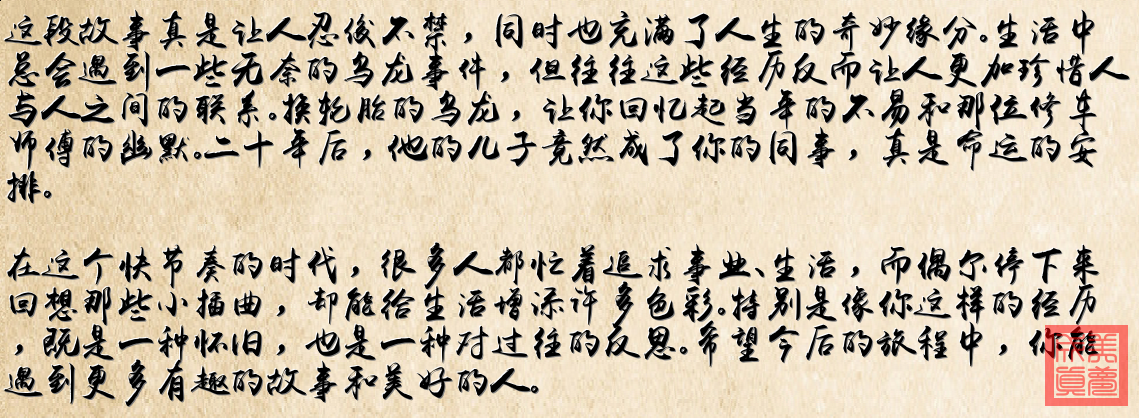 这段故事真是让人忍俊不禁，同时也充满了人生的奇妙缘分。生活中
总会遇到一些无奈的乌龙事件，但往往这些经历反而让人更加珍惜人
与人之间的联系。换轮胎的乌龙，让你回忆起当年的不易和那位修车
师傅的幽默。二十年后，他的儿子竟然成了你的同事，真是命运的安
排。
在这个快节奏的时代，很多人都忙着追求事业、生活，而偶尔停下来
回想那些小插曲，却能给生活增添许多色彩。特别是像你这样的经历
，既是一种怀旧，也是一种对过往的反思。希望今后的旅程中，你能
遇到更多有趣的故事和美好的人。